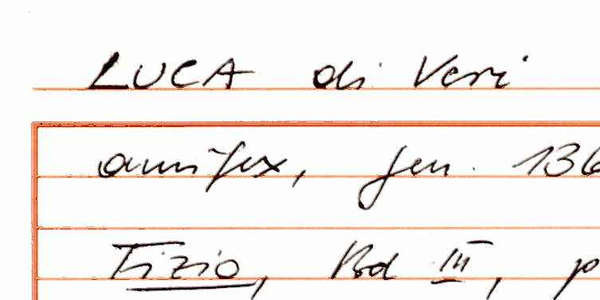 LUCA di Veri
aurifex, gen. 136
Tizio, Bd III, p